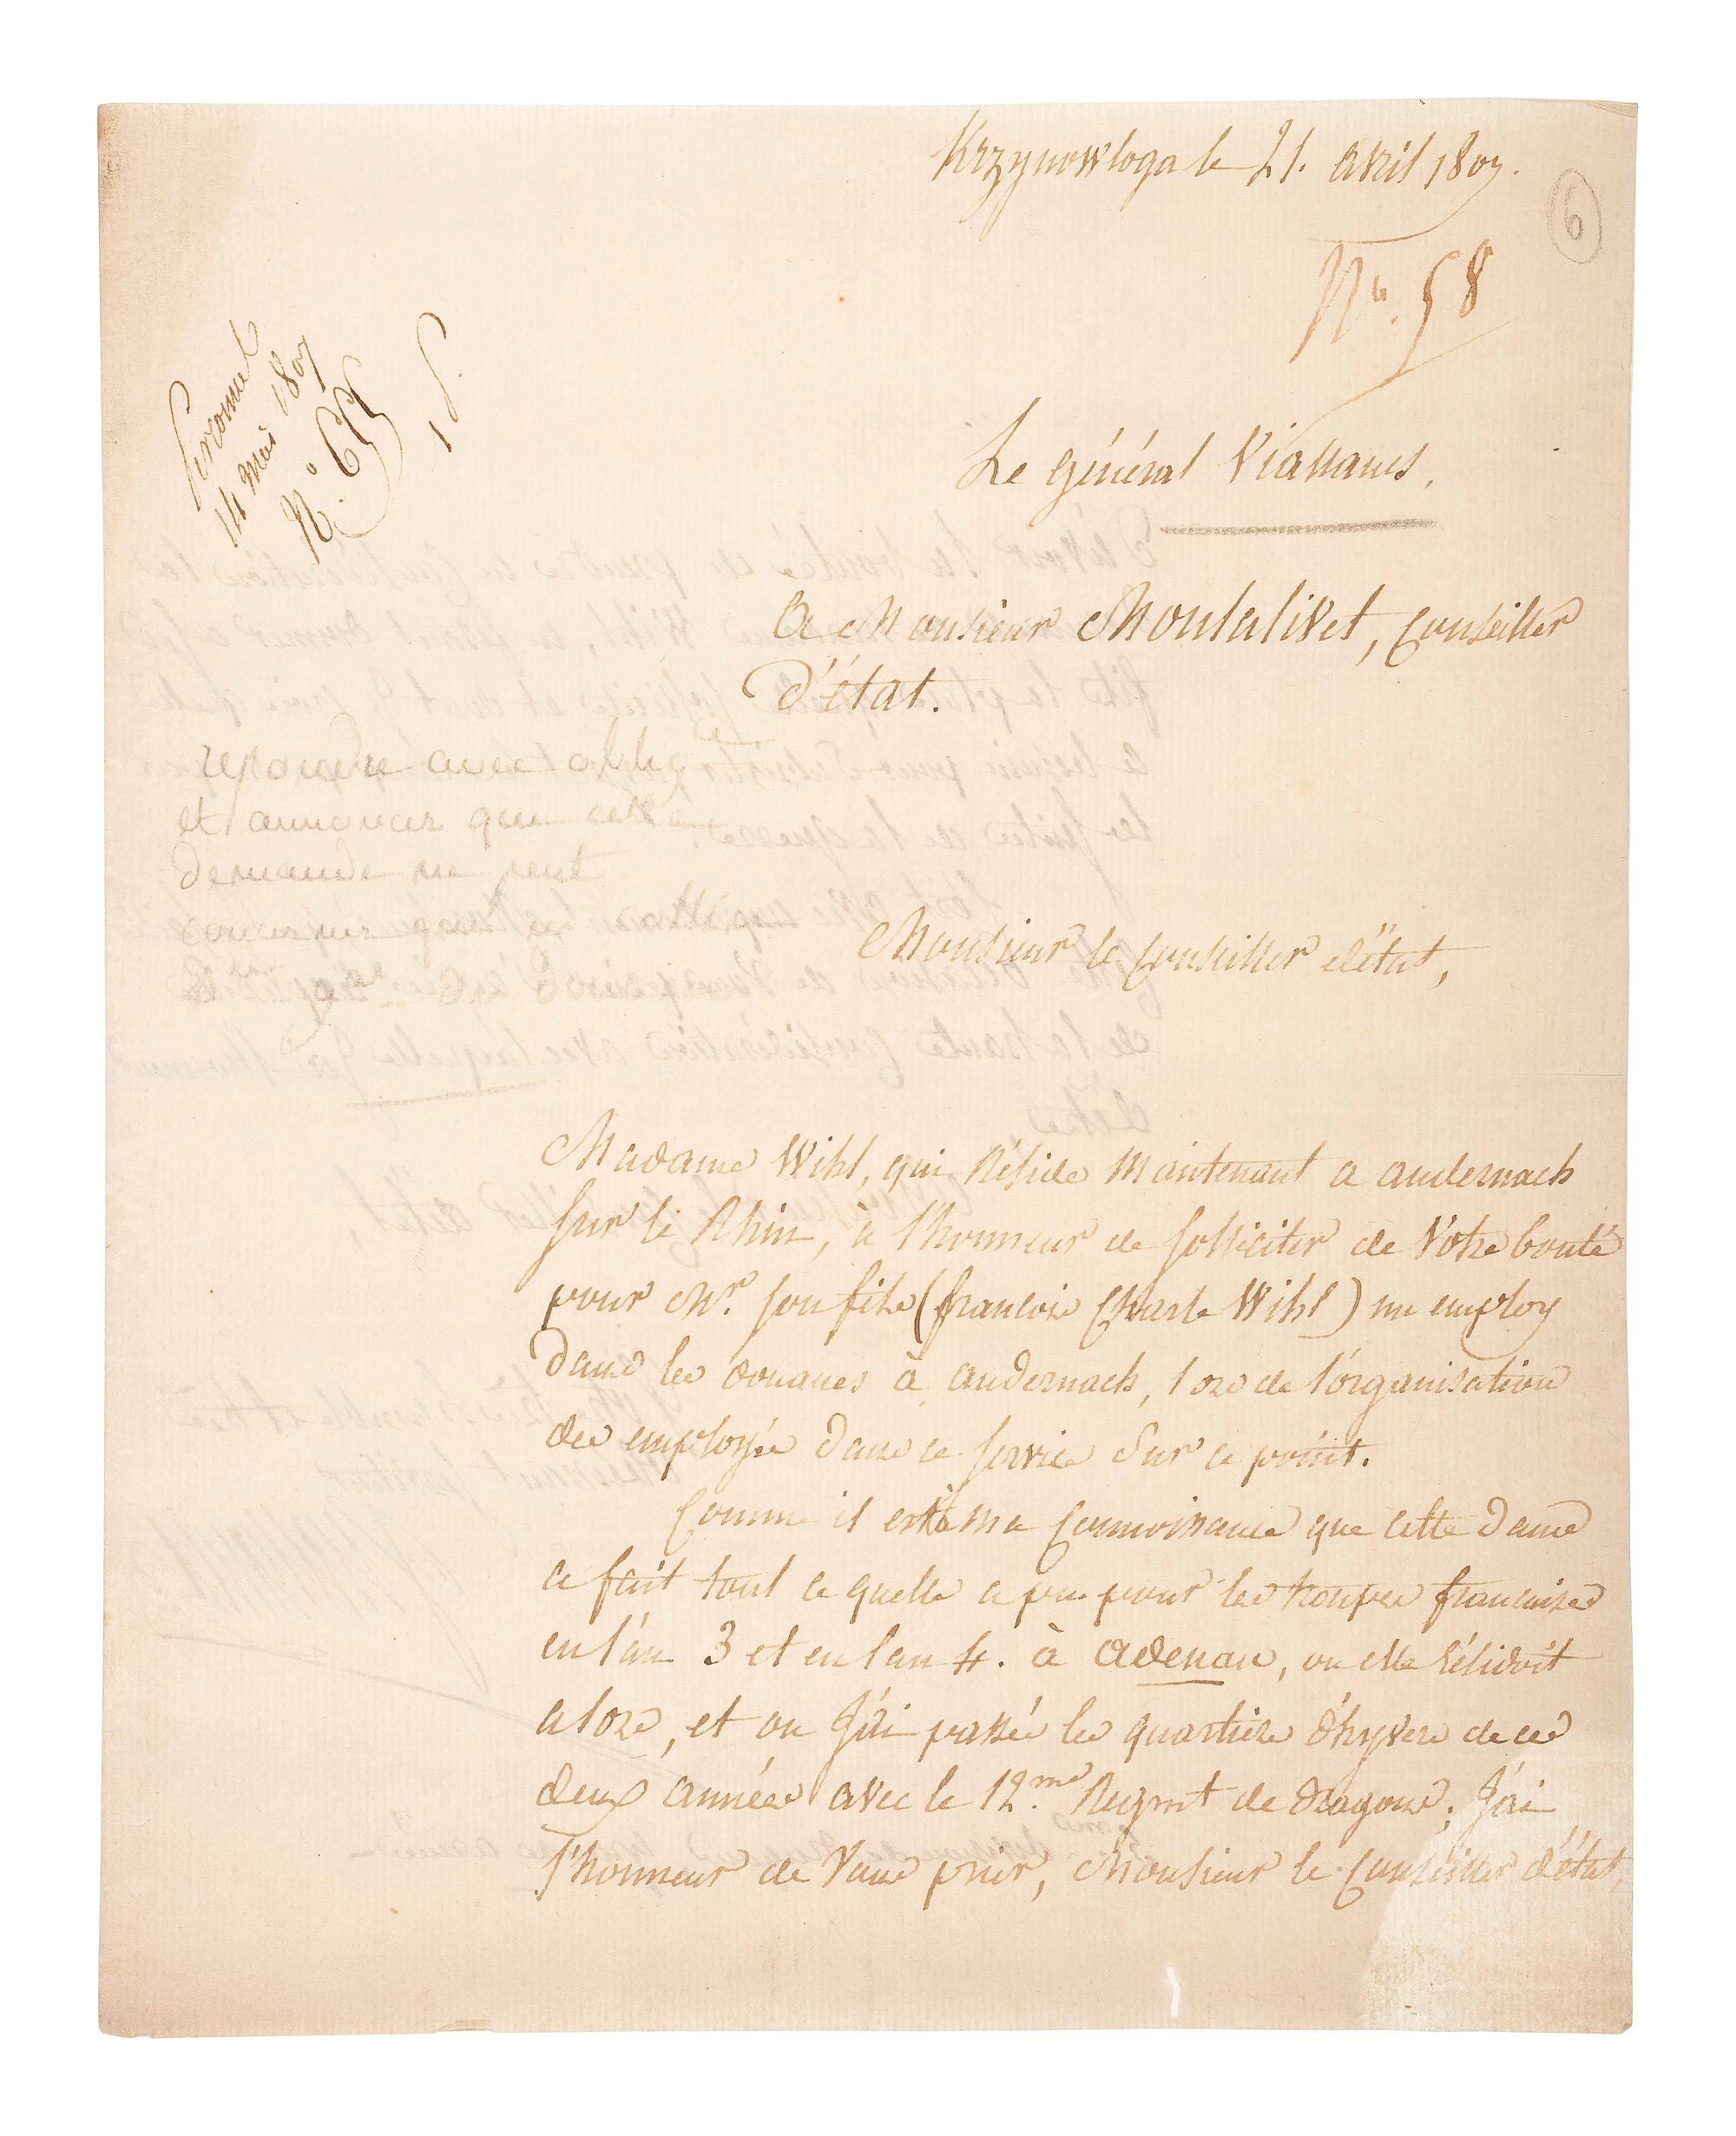 Krzynowloga le 21. avril 1807.
6
N°. 58
Personnel
14 Mai 1807
N.° 65
15.
Le général Viallanes,
A Monsieur Montalivet, Conseiller
d'état.
repondre avec oblig.ce
et annoncer que cette
demande ne peut
concerner que
Monsieur le Conseiller d'état,
Madame Wihl, qui Réside Maintenant a andernach
sur le Rhin, à l'honneur de solliciter de Votre bonté
pour Mr. son fils (francois Charle Wihl) un employ
dans les douanes à andernach, lors de l'organisation
des employés dans ce service sur ce point.
Comme il est à ma Connoissance que cette dame
a fait tout ce quelle a pu pour les troupes francaises
en l'an 3 et en l'an 4. à Adenau, ou elle Résidoit
alors, et ou J'ai passé les quartiers d'hyvers de ces
deux années avec le 12.me Regmt de dragons; J'ai
l'honneur de Vous prier, Monsieur le Conseiller d'état,